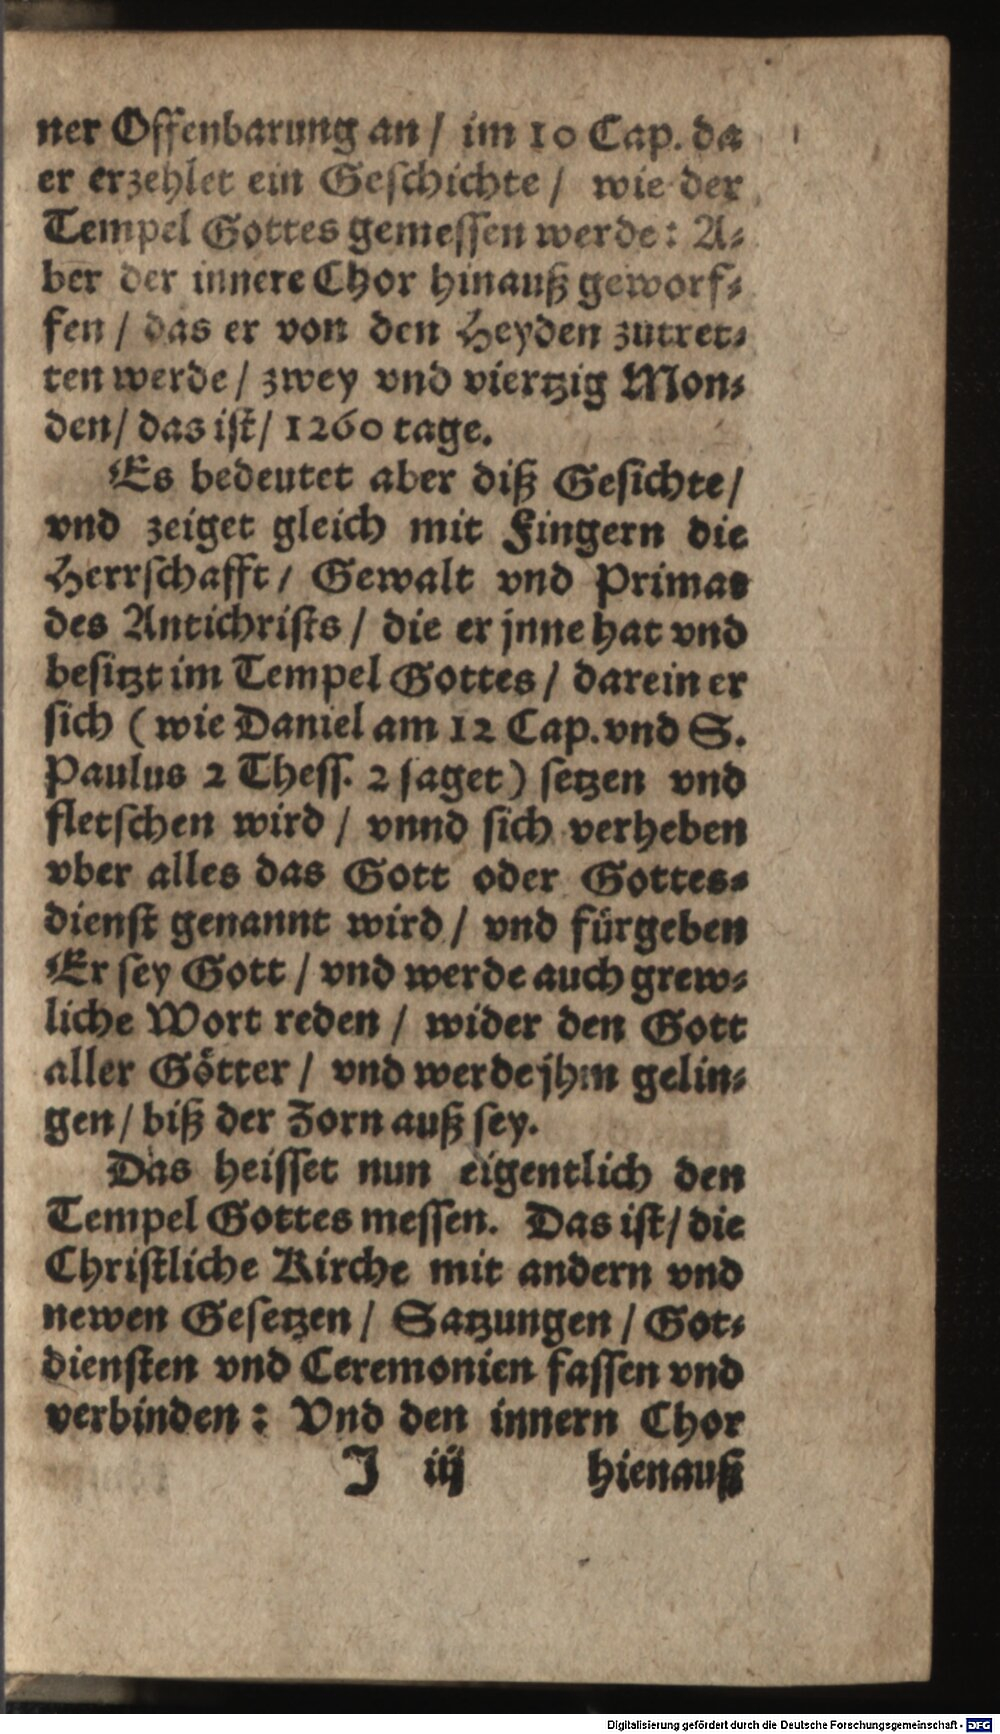 ner Offenbarung an / im 10 Cap. da
er erzehlet ein Geschichte / wie der
Tempel Gottes gemessen werde: A⸗
ber der innere Chor hinauß geworf⸗
fen / das er von den Heyden zutret⸗
ten werde / zwey vnd viertzig Mon⸗
den / das ist / 1260 tage.
Es bedeutet aber diß Gesichte /
vnd zeiget gleich mit Fingern die
Herrschafft / Gewalt vnd Primat
des Antichrists / die er jnne hat vnd
besitzt im Tempel Gottes / darein er
sich ( wie Daniel am 12 Cap. vnd S.
Paulus 2 Thess. 2 saget ) setzen vnd
fletschen wird / vnnd sich verheben
vber alles das Gott oder Gottes⸗
dienst genannt wird / vnd fürgeben
Er sey Gott / vnd werde auch grew⸗
liche Wort reden / wider den Gott
aller Götter / vnd werde jhm gelin⸗
gen / biß der Zorn auß sey.
Das heisset nun eigentlich den
Tempel Gottes messen. Das ist / die
Christliche Kirche mit andern vnd
newen Gesetzen / Satzungen / Got⸗
diensten vnd Ceremonien fassen vnd
verbinden: Vnd den innern Chor
J iij hienauß
Digitalisierung gefördert durch die Deutsche Forschungsgemeinschaft - DFG